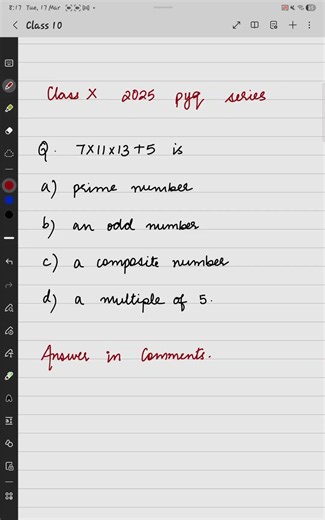 8:17 Tue, 17 Mar
Class 10
Class X 2025 pyq series
Q. 7x11x13+5 is
a) prime number
b) an odd number
c) a composite number
d) a multiple of 5.
Answer in Comments.